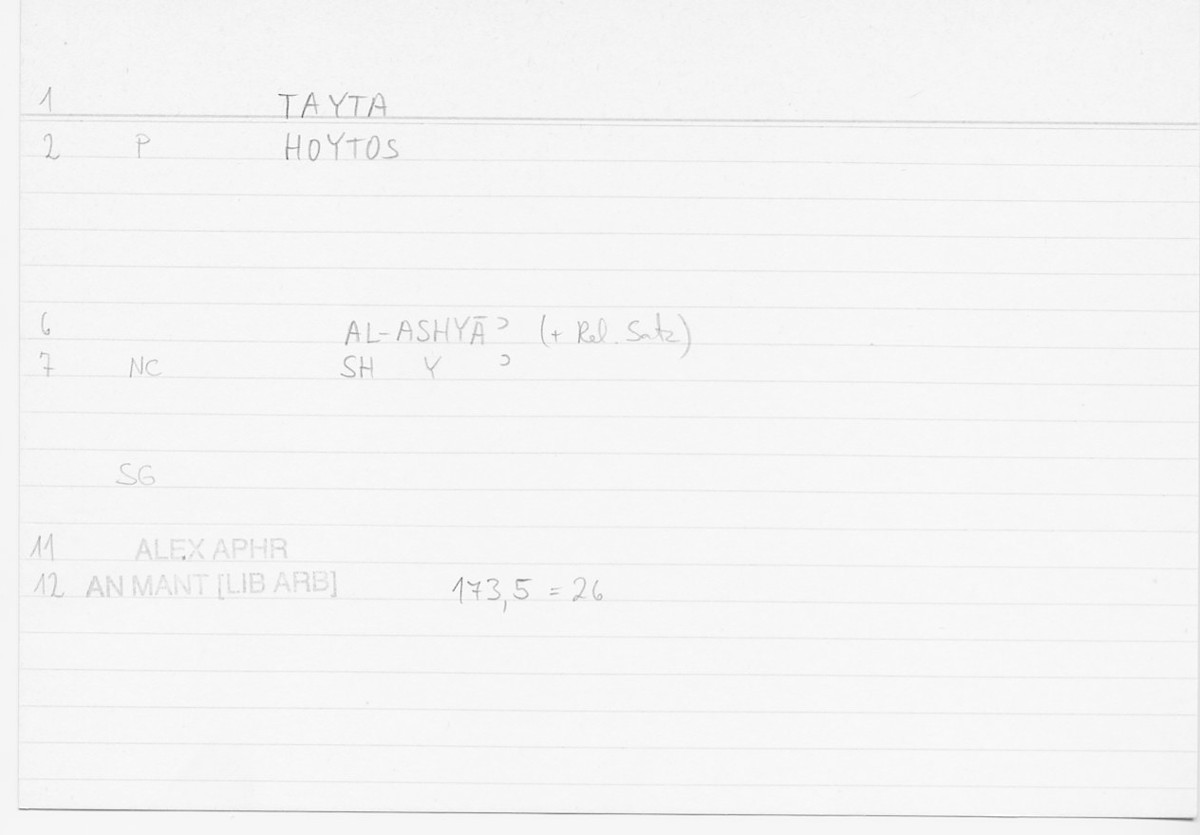 1 TAYTA
2 P HOYTOS
6 AL-ASHYĀʾ (+ Rel. Satz)
7 NC SH Y ʾ
SG
11 ALEX APHR
12 AN MANT [LIB ARB] 173,5 = 26